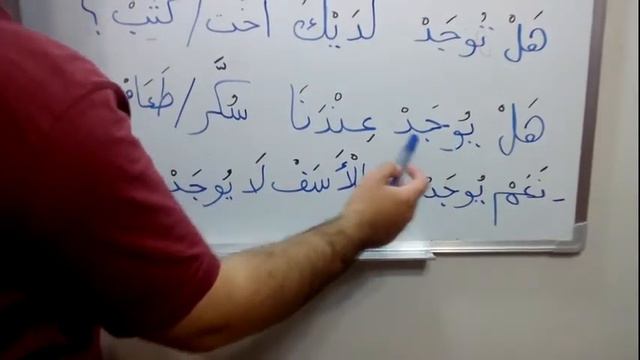 هَلْ تُوجَدْ لَدَيْكَ أُخْت / كُتُبْ ؟
هَلْ يُوجَدْ عِنْدَنَا سُكَّر / طَعَامْ
- نَعَمْ يُوجَدْ لْأَسَفْ لَا يُوجَدْ